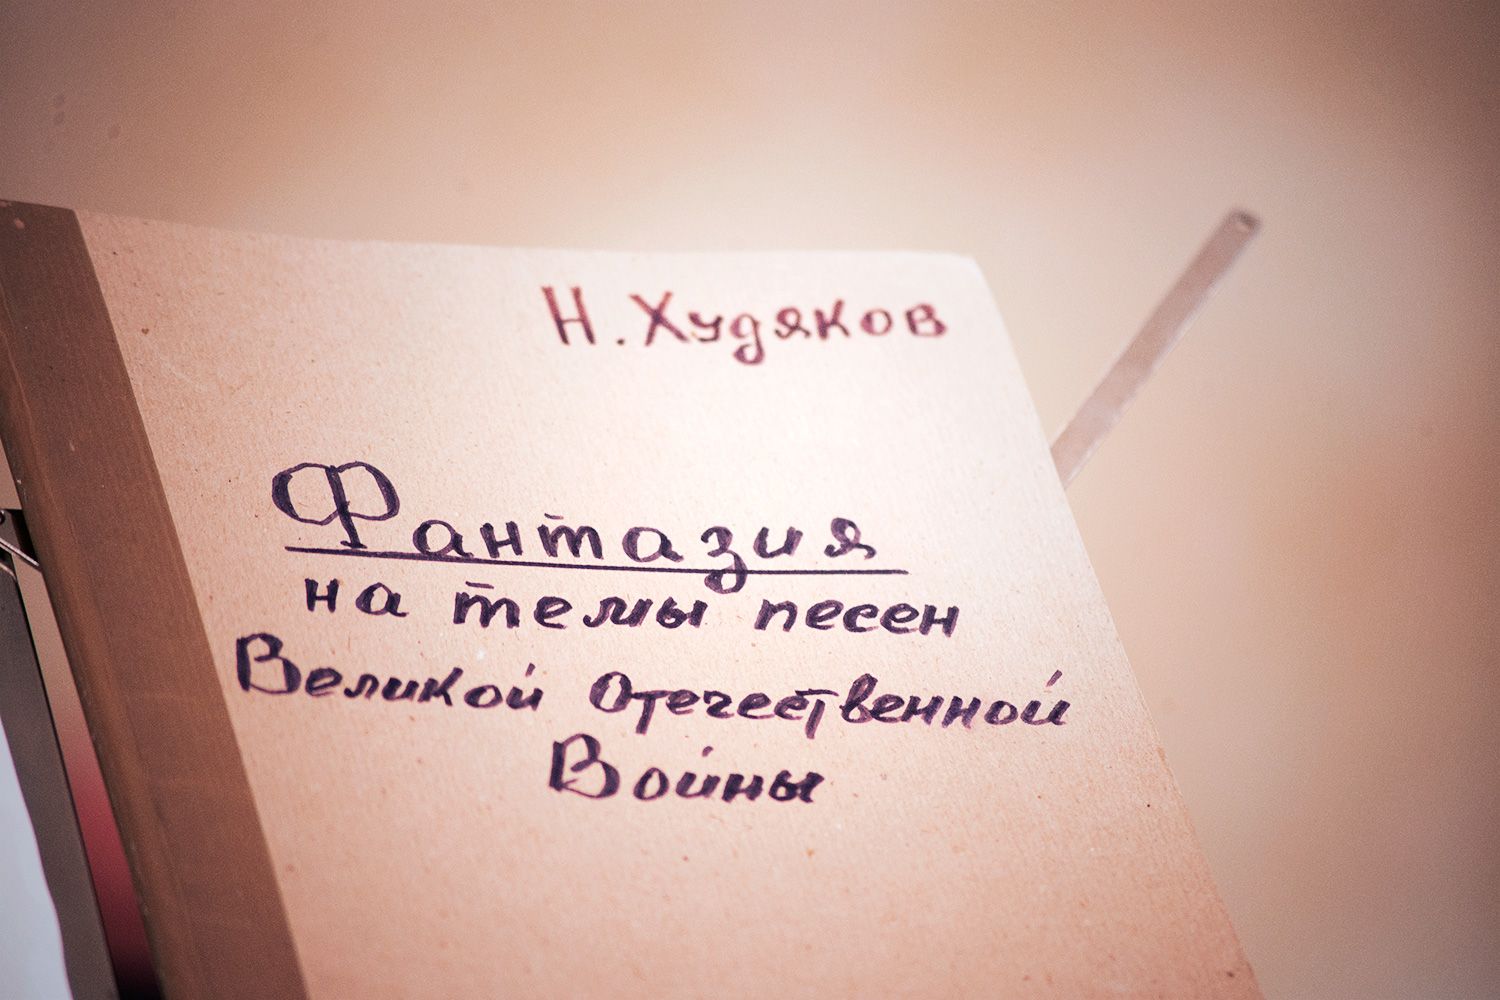 Н. Худяков
Фантазия
на темы песен
Великой Отечественной
Войны